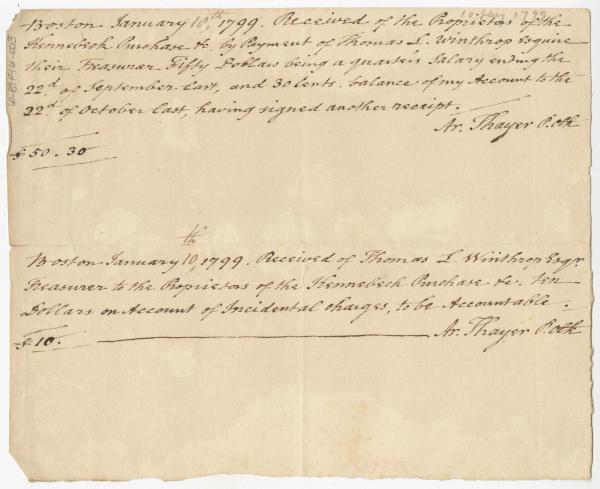 Boston January 10th, 1799. Received of the Proprietors of the
Kennebeck Purchase &c. by Payment of Thomas L. Winthrop Esquire
their Treasurer Fifty Dollars being a quarter's Salary ending the
22d. of September last, and 30 Cents. balance of my Account to the
22d. of October last, having signed another receipt.
Ar. Thayer P. Clk
$50.30
Boston January 10th, 1799. Received of Thomas L Winthrop Esqr.
Treasurer to the Proprietors of the Kennebeck Purchase &c. ten
Dollars on Account of Incidental charges, to be Accountable.
$10.
Ar. Thayer P. Clk